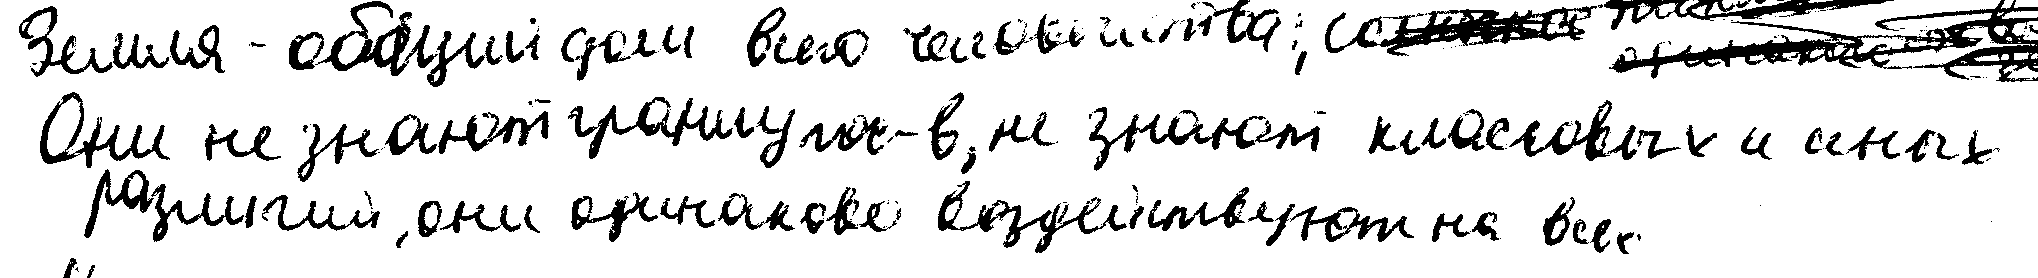 Земля - общий дом всего человечества;
Они не знают границ гос-в, не знают классовых и иных
различий, они одинаково воздействуют на всех